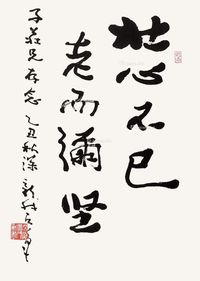 壮心不已
老而彌坚
子莊兄存念 乙丑秋深